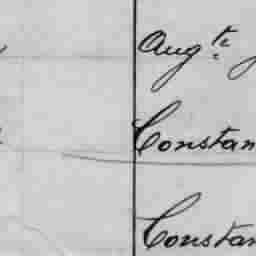 Aug.te
Constan
Constan